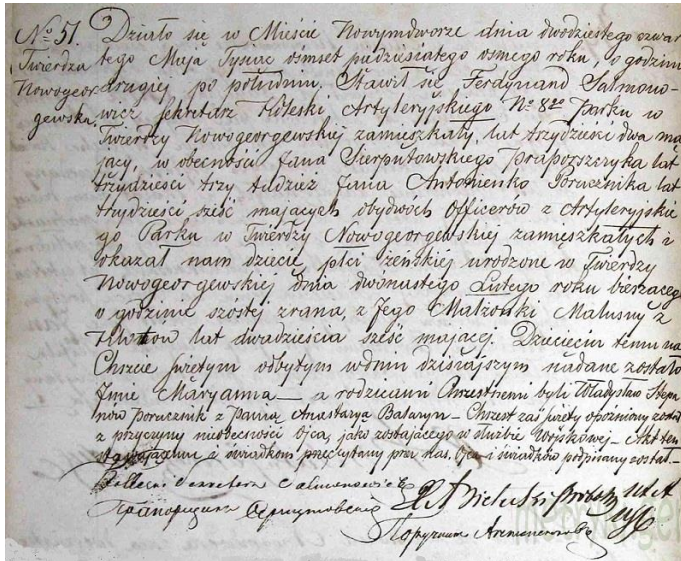 No 51. Działo się w Mieście Nowymdworze dnia dwodziestego czwar
Twierdza tego Maja Tysiąc ośmset pięдziesiątego osmego roku, o godzinie
Nowogeor drugiej po południu. Stawił się Ferdynand Salmono-
gewska. wicz Sekretarz Kolleski Artyleryjskiego No 8go Parku w
Twierdzy Nowogeorgewskiej zamieszkały, lat trzydzieści dwa ma
jący, w obecności Jana Sierputowskiego Praporszczyka lat
trzydzieści trzy tudzież Jana Antonienko Porucznika lat
trzydzieści sześć mających obydwóch Officerów z Artyleryjskie
go Parku w Twierdzy Nowogeorgewskiej zamieszkałych i
okazał nam dziecię płci żeńskiej urodzone w Twierdzy
Nowogeorgewskiej dnia dwónastego Lutego roku bieżącego
o godzinie szóstej zrana, z Jego Małżonki Malusny z
lat dwadzieścia sześć mającej. Dziecięciu temu na
Chrzcie świętym odbytym w dniu dzisiejszym nadane zostało
Imie Maryanna — a rodzicami Chrzestnemi byli Władysław Stepa
now Porucznik z Panią Anastazyą Bataryn — Chrzest zaś święty opóźniony został
z przyczyny nieobecności Ojca, jako zostającego w służbie Wojskowej — Akt ten
stawającemu a świadkom przeczytany przez Nas, Ojca i świadków podpisany został —
Секретарь Салмоновичь
Прапорщикъ
Поручикъ Антоненко